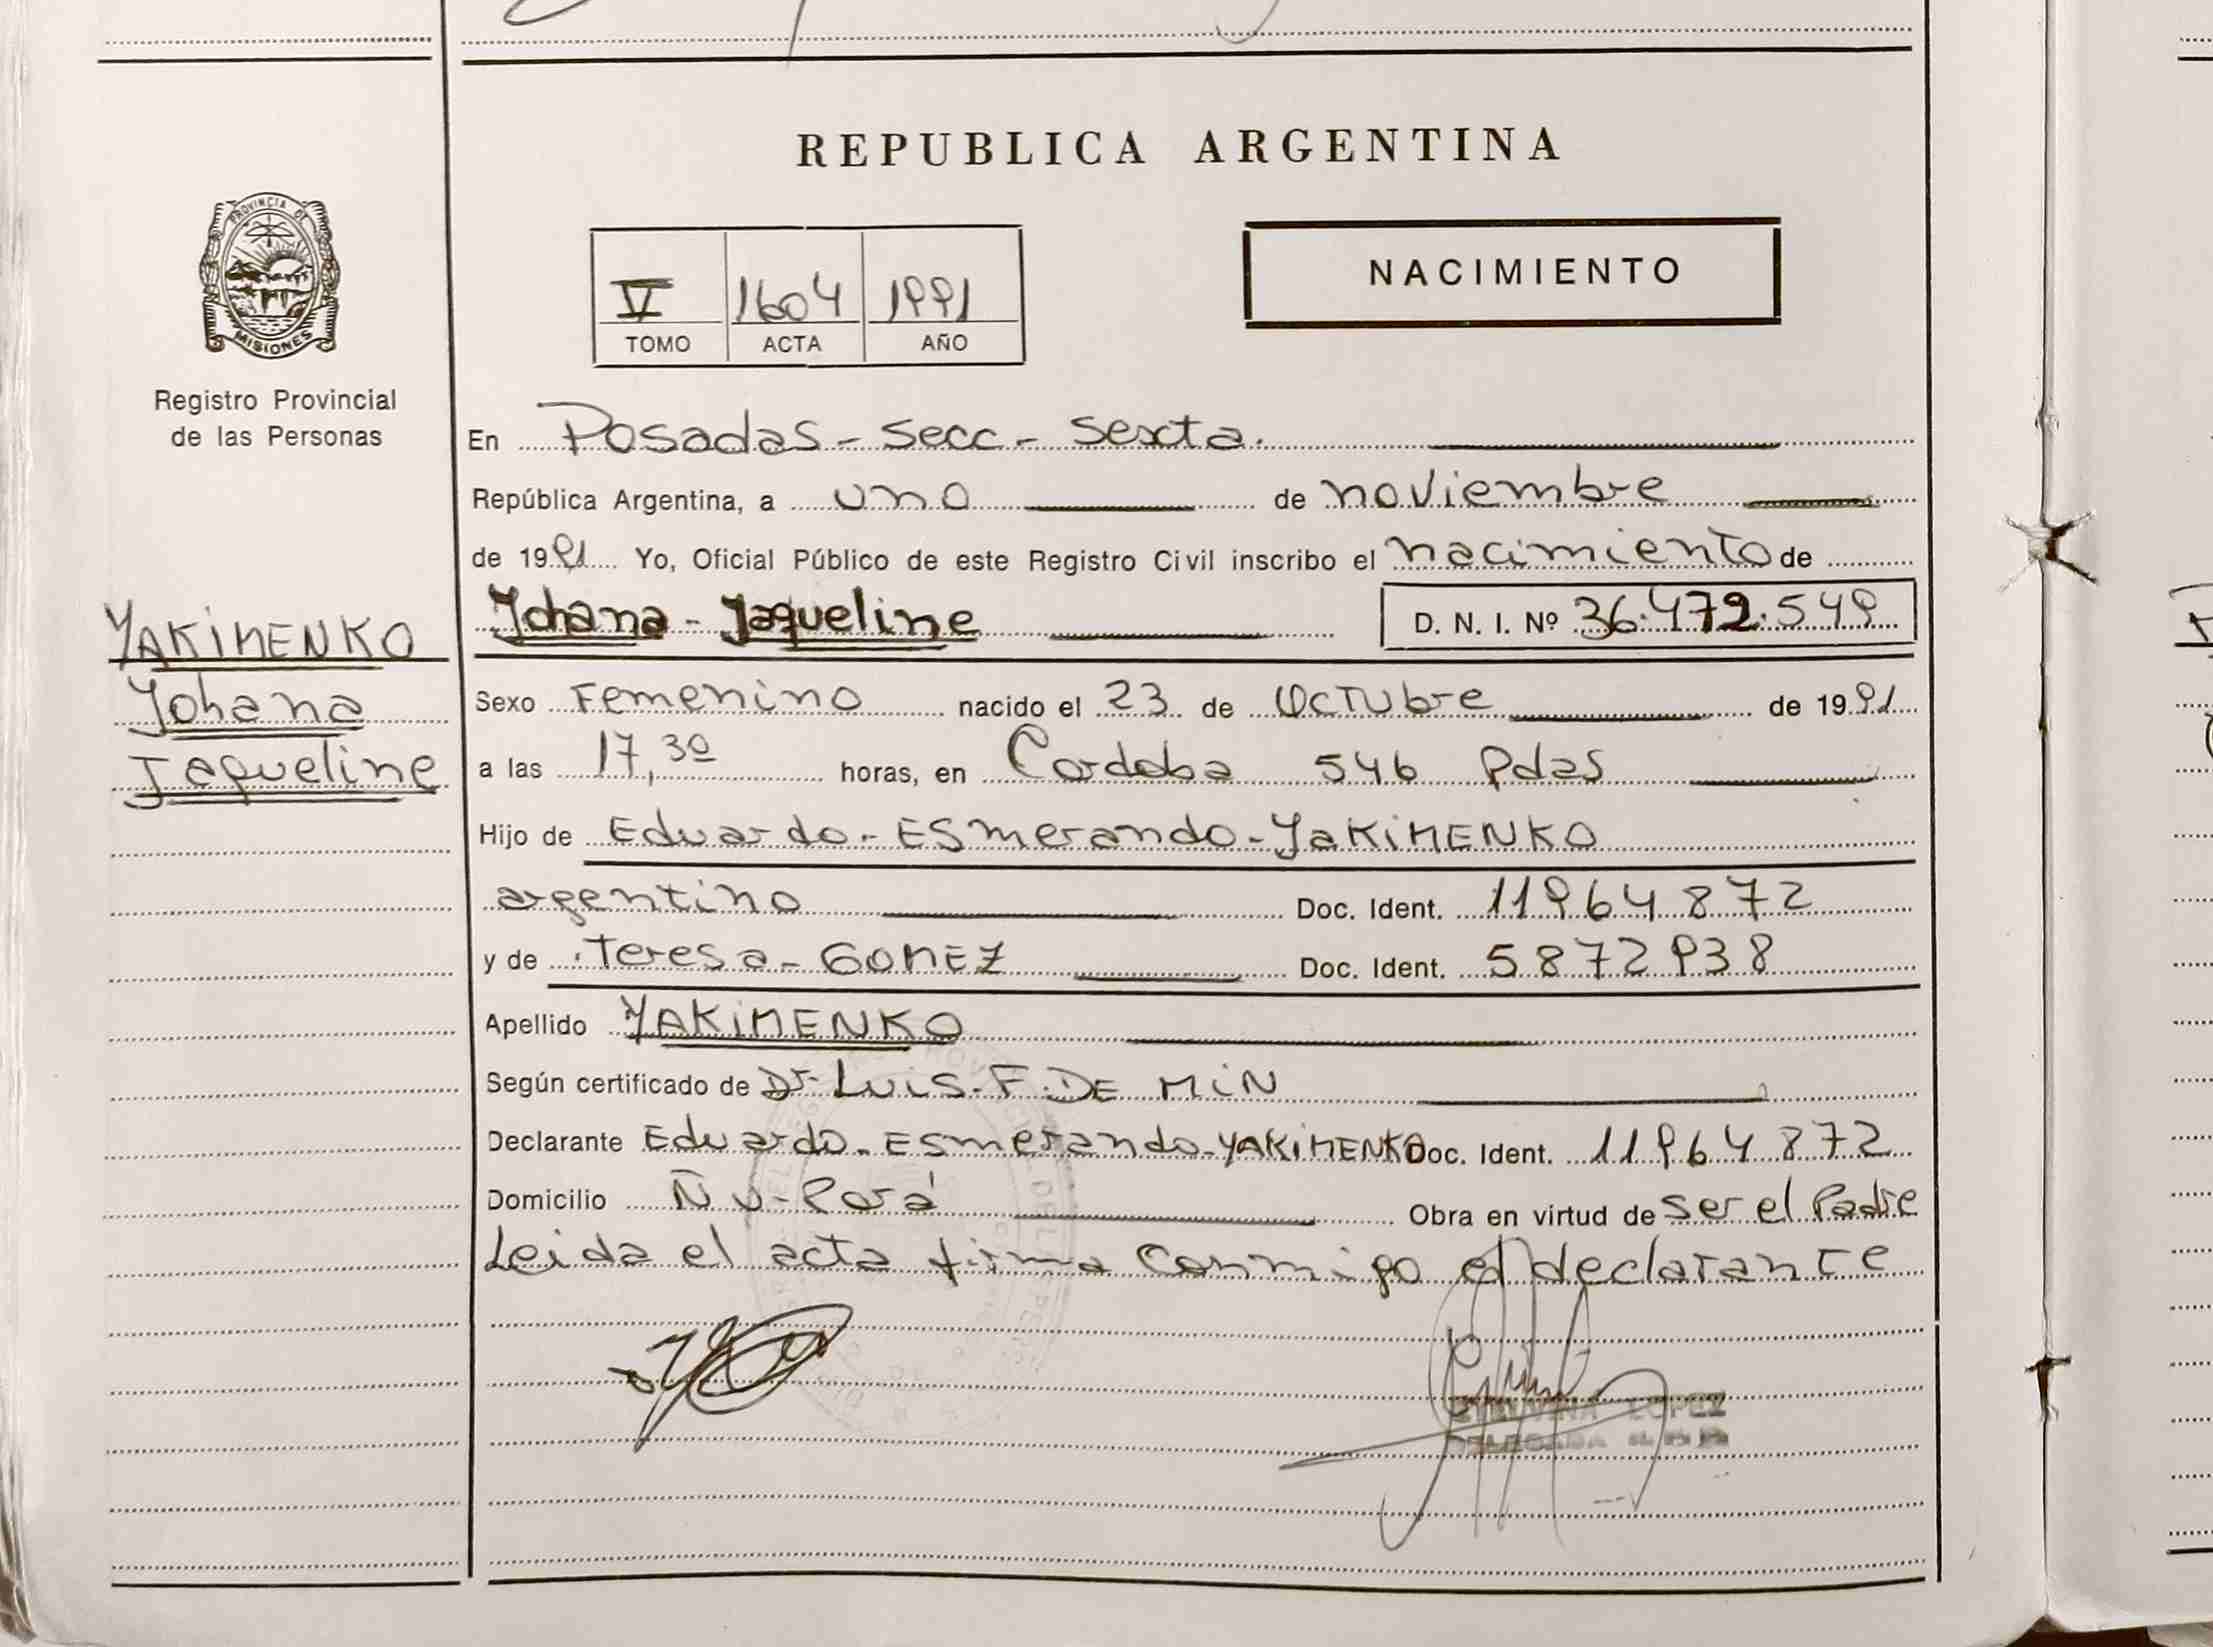 REPUBLICA ARGENTINA
PROVINCIA DE
MISIONES
Registro Provincial
de las Personas
V 1604 1991
TOMO ACTA AÑO
NACIMIENTO
En Posadas - secc - sexta.
República Argentina, a uno de noviembre
de 1991 Yo, Oficial Público de este Registro Civil inscribo el nacimiento de
Yohana - Jaqueline D. N. I. Nº 36.472.549
YAKIMENKO
Yohana
Jaqueline
Sexo Femenino nacido el 23 de Octubre de 1991
a las 17,30 horas, en Cordoba 546 Pdas
Hijo de Eduardo - Esmerando - YAKIMENKO
argentino Doc. Ident. 11964872
y de Teresa - GOMEZ Doc. Ident. 5872938
Apellido YAKIMENKO
Según certificado de Dr. Luis - F. DE MIN
Declarante Eduardo - Esmerando - YAKIMENKO Doc. Ident. 11964872
Domicilio Ñu - Porá Obra en virtud de ser el Padre
Leida el acta firma conmigo el declarante
LOPEZ